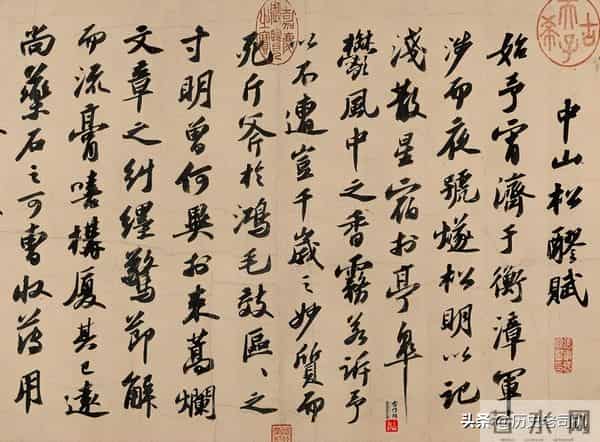 中山松醪賦
始予宵濟于衡漳軍
涉而夜號燧松明以記
淺散星宿於亭皋
鬱風中之香霧若訴予
以不遭豈千歲之妙質而
死斤斧於鴻毛效區〻之
寸明曾何異於束蒿爛
文章之糾纏驚節解
而流膏嘻構廈其已遠
尚藥石之可曹收薄用
古希天子
头条@历史老司机